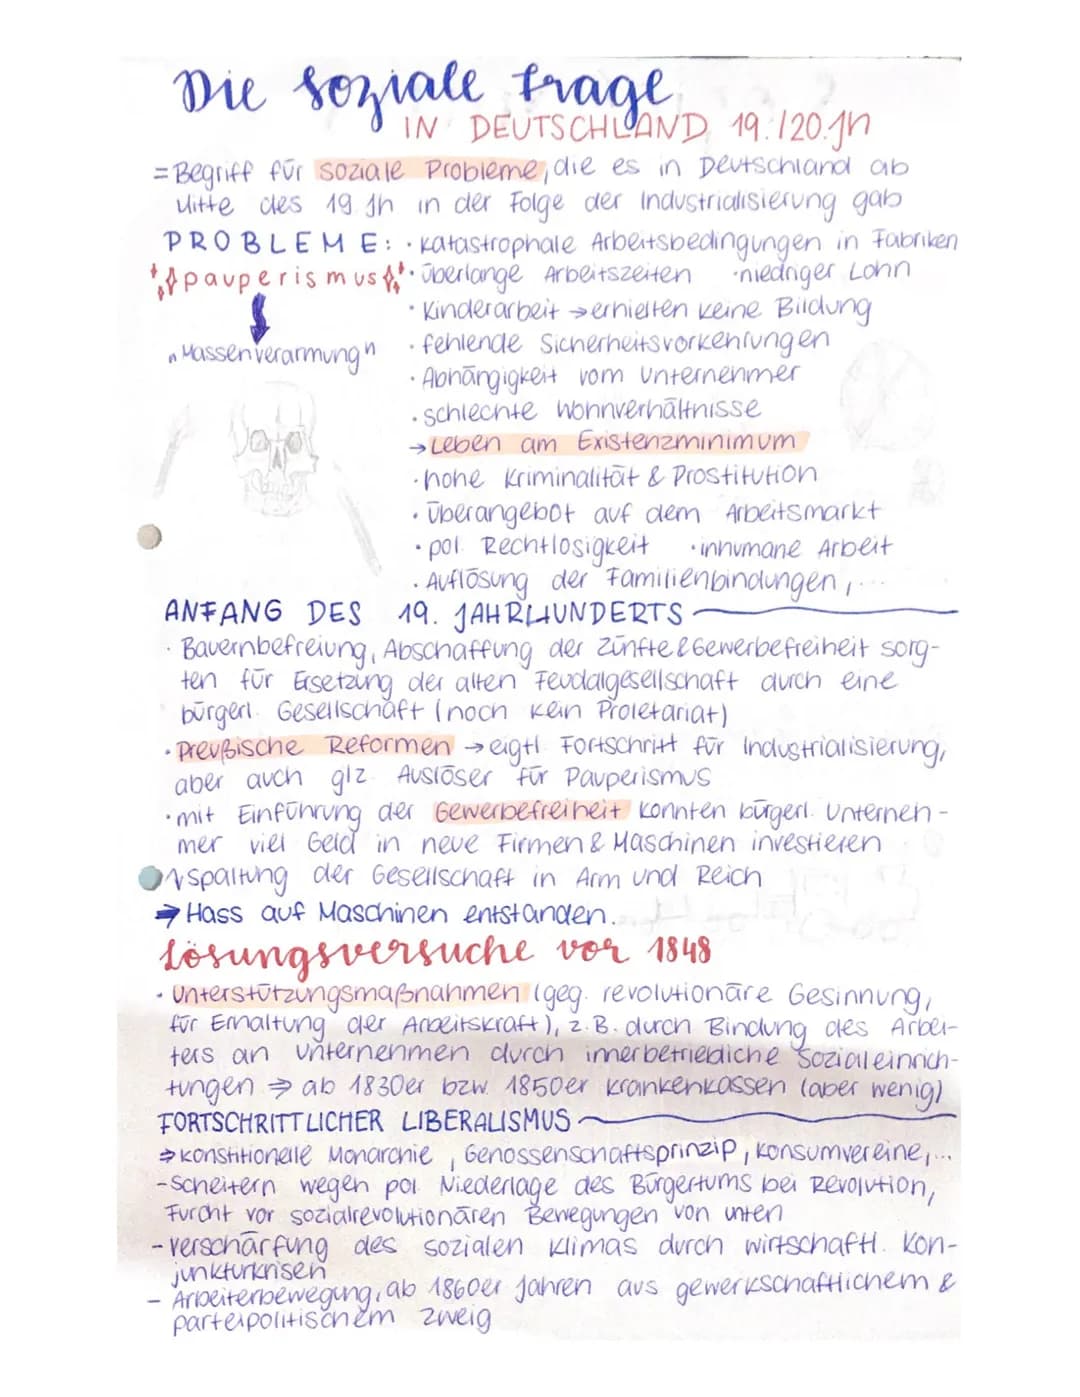 Die soziale Frage
IN DEUTSCHLAND 19./20.Jh
= Begriff für soziale Probleme, die es in Deutschland ab
Mitte des 19. Jh in der Folge der Industrialisierung gab
PROBLEME: · katastrophale Arbeitsbedingungen in Fabriken
pauperismus · überlange Arbeitszeiten · niedriger Lohn
· Kinderarbeit → erhielten keine Bildung
"Massenverarmung" · fehlende Sicherheitsvorkehrungen
· Abhängigkeit vom Unternehmer
· schlechte Wohnverhältnisse
→ Leben am Existenzminimum
· hohe Kriminalität & Prostitution
· Überangebot auf dem Arbeitsmarkt
· pol. Rechtlosigkeit · inhumane Arbeit
· Auflösung der Familienbindungen, ...
ANFANG DES 19. JAHRHUNDERTS
· Bauernbefreiung, Abschaffung der Zünfte & Gewerbefreiheit sorg-
ten für Ersetzung der alten Feudalgesellschaft durch eine
bürgerl. Gesellschaft (noch kein Proletariat)
· Preußische Reformen → eigtl. Fortschritt für Industrialisierung,
aber auch glz. Auslöser für Pauperismus
· mit Einführung der Gewerbefreiheit konnten bürgerl. Unterneh-
mer viel Geld in neue Firmen & Maschinen investieren
spaltung der Gesellschaft in Arm und Reich
→ Hass auf Maschinen entstanden.
Lösungsversuche vor 1848
· Unterstützungsmaßnahmen (geg. revolutionäre Gesinnung,
für Erhaltung der Arbeitskraft), z.B. durch Bindung des Arbei-
ters an Unternehmen durch innerbetriebliche Sozialeinrich-
tungen ⇒ ab 1830er bzw. 1850er Krankenkassen (aber wenig)
FORTSCHRITTLICHER LIBERALISMUS
⇒ konstitionelle Monarchie, Genossenschaftsprinzip, Konsumvereine, ...
- Scheitern wegen pol. Niederlage des Bürgertums bei Revolution,
Furcht vor sozialrevolutionären Bewegungen von unten
- Verschärfung des sozialen Klimas durch wirtschaftl. Kon-
junkturkrisen
- Arbeiterbewegung, ab 1860er Jahren aus gewerkschaftlichem &
parteipolitischem Zweig